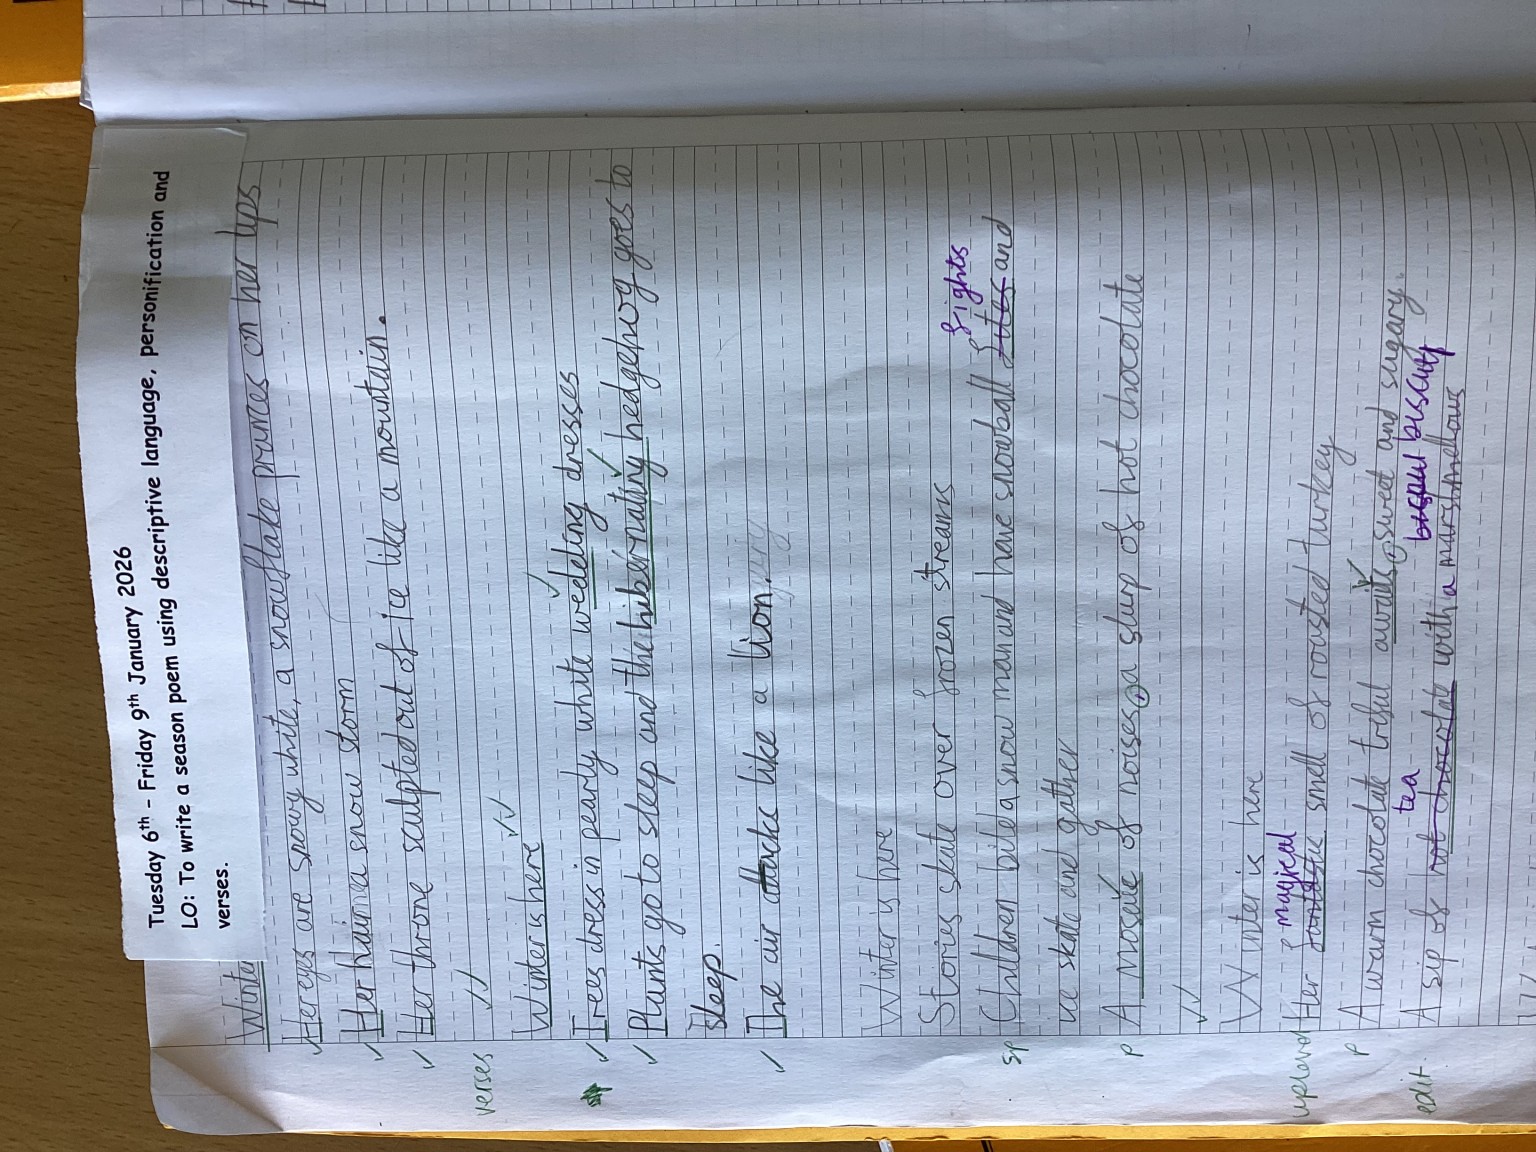 Tuesday 6th - Friday 9th January 2026
LO: To write a season poem using descriptive language, personification and
verses.
Winte
Her eyes are snowy white, a snowflake prances on her lips
Her hair a snow storm
Her throne sculpted out of ice like a mountain.
verses
Winter is here
Trees dress in pearly white wedding dresses
Plants go to sleep and the hibernating hedgehog goes to
sleep.
The air attacks like a lion.
Winter is here
Stories skate over frozen streams
fights
sp Children bild a snow man and have snowball fites and
ice skate and gather
p A mosaic of noises, a slurp of hot chocolate
Winter is here
magical
uplevel Her fantastic smell of roasted turkey
p A warm chocolate treat awaits, sweet and sugary.
tea biscuit
edit. A sip of hot chocolate with a marshmellows